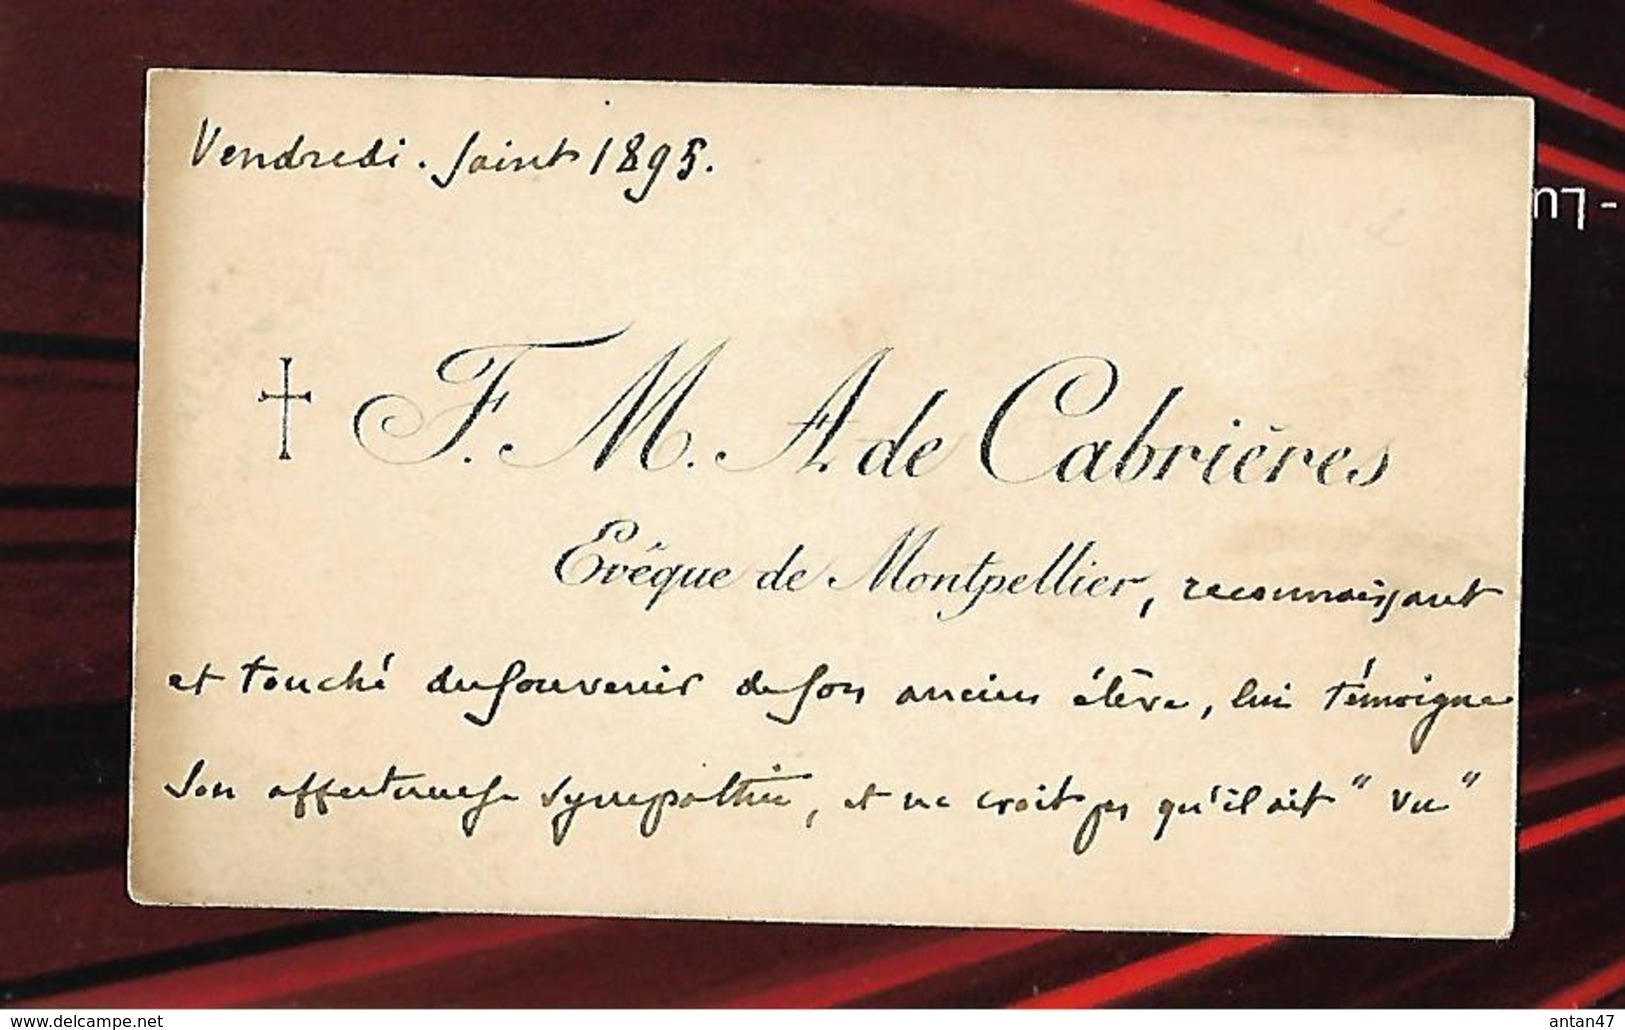 Vendredi. Saint 1895.
- Lu
† F. M. A. de Cabrières
Evêque de Montpellier, reconnaissant
et touché du souvenir de son ancien élève, lui témoigne
son affectueuse sympathie, et ne croit pas qu'il ait " vu "
www.delcampe.net
antan47